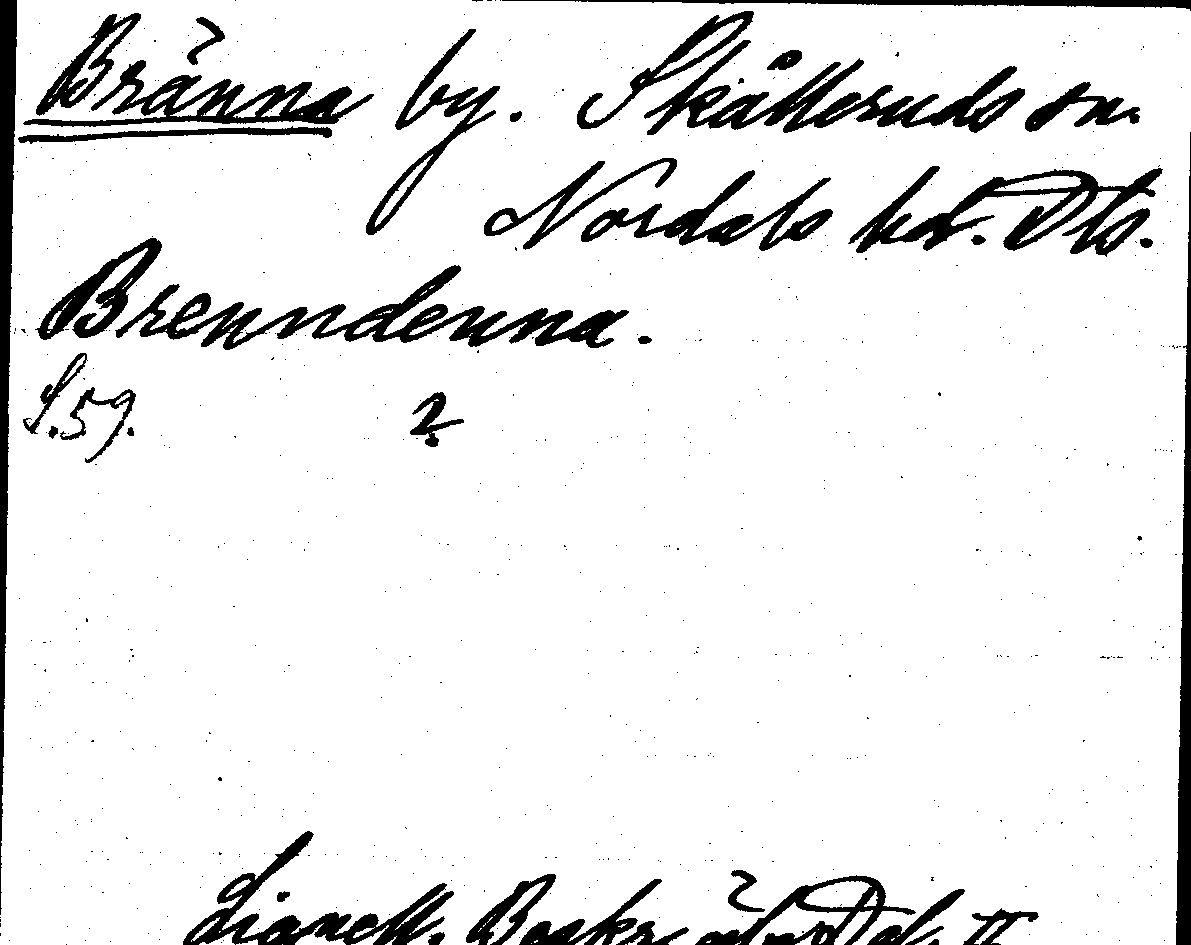 Bränna by. Skålleruds sn.
Nordals hd. Dls.
Brenndenna.
S.59. 2.
Lignell. Beskr. öfver Dal. II